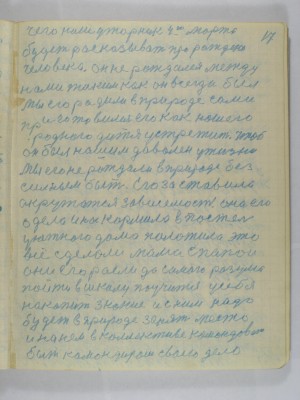 17
чего наш дторник 4м марта
будет расказыват про рождения
человека. он не рождался между
нами таким как он всегда был
мы его родим в природе сами
приготовимся его как нашого
родного дитя устретит. чтоб
он был нашим довален у жизни
мы его не рождали в природе без
сильным быт. Его заставила
окружатся зависимост она его
одела и накормила в постел
уютного дома положила это
всё сделали мама с папой
они его растили до самого разумья
пойти в школу поучится у себя
накопит знание и с ним надо
будет в природе занят место
и начем в коллективе командоват
быт командиром своего дела